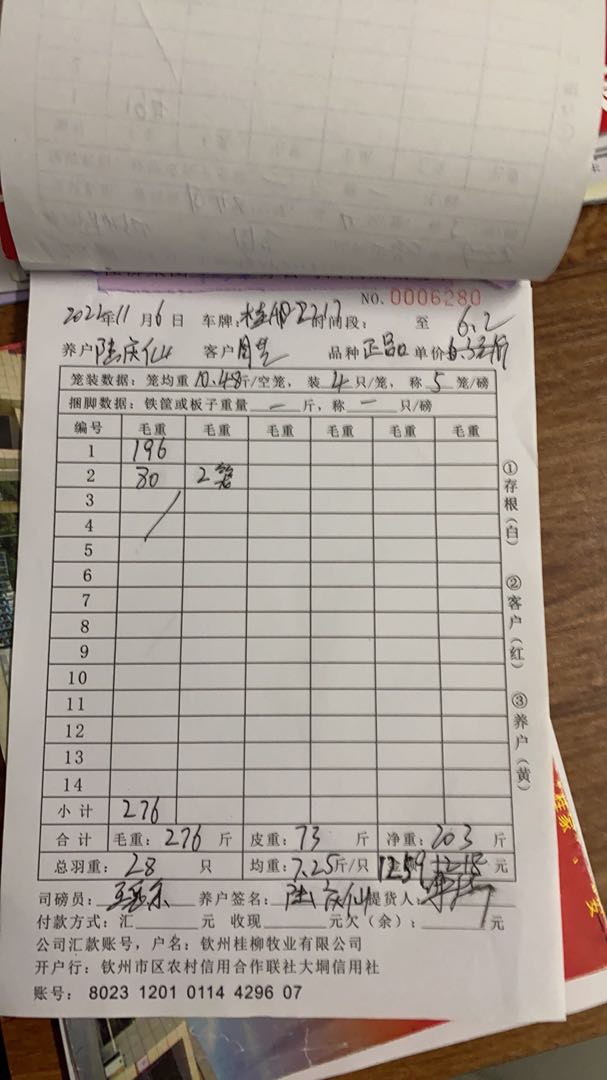 NO. 0006280
2022年11月6日 车牌: 时间段: 至 6.2
养户 陆庆仙 客户 品种 正品 单价
笼装数据：笼均重 10.48斤/空笼，装 4 只/笼，称 5 笼/磅
捆脚数据：铁筐或板子重量 — 斤，称 — 只/磅
编号 毛重 毛重 毛重 毛重 毛重 毛重
1 196
2 80 2笼
3
4
5
6
7
8
9
10
11
12
13
14
小计 276
合计 毛重：276 斤 皮重：73 斤 净重：203 斤
总羽重：28 只 均重：7.25斤/只 1259 元
司磅员： 养户签名：陆庆仙 提货人：
付款方式：汇 元 收现 元欠（余）： 元
公司汇款账号，户名：钦州桂柳牧业有限公司
开户行：钦州市区农村信用合作联社大垌信用社
账号： 8023 1201 0114 4296 07
①存根（白）
②客户（红）
③养户（黄）